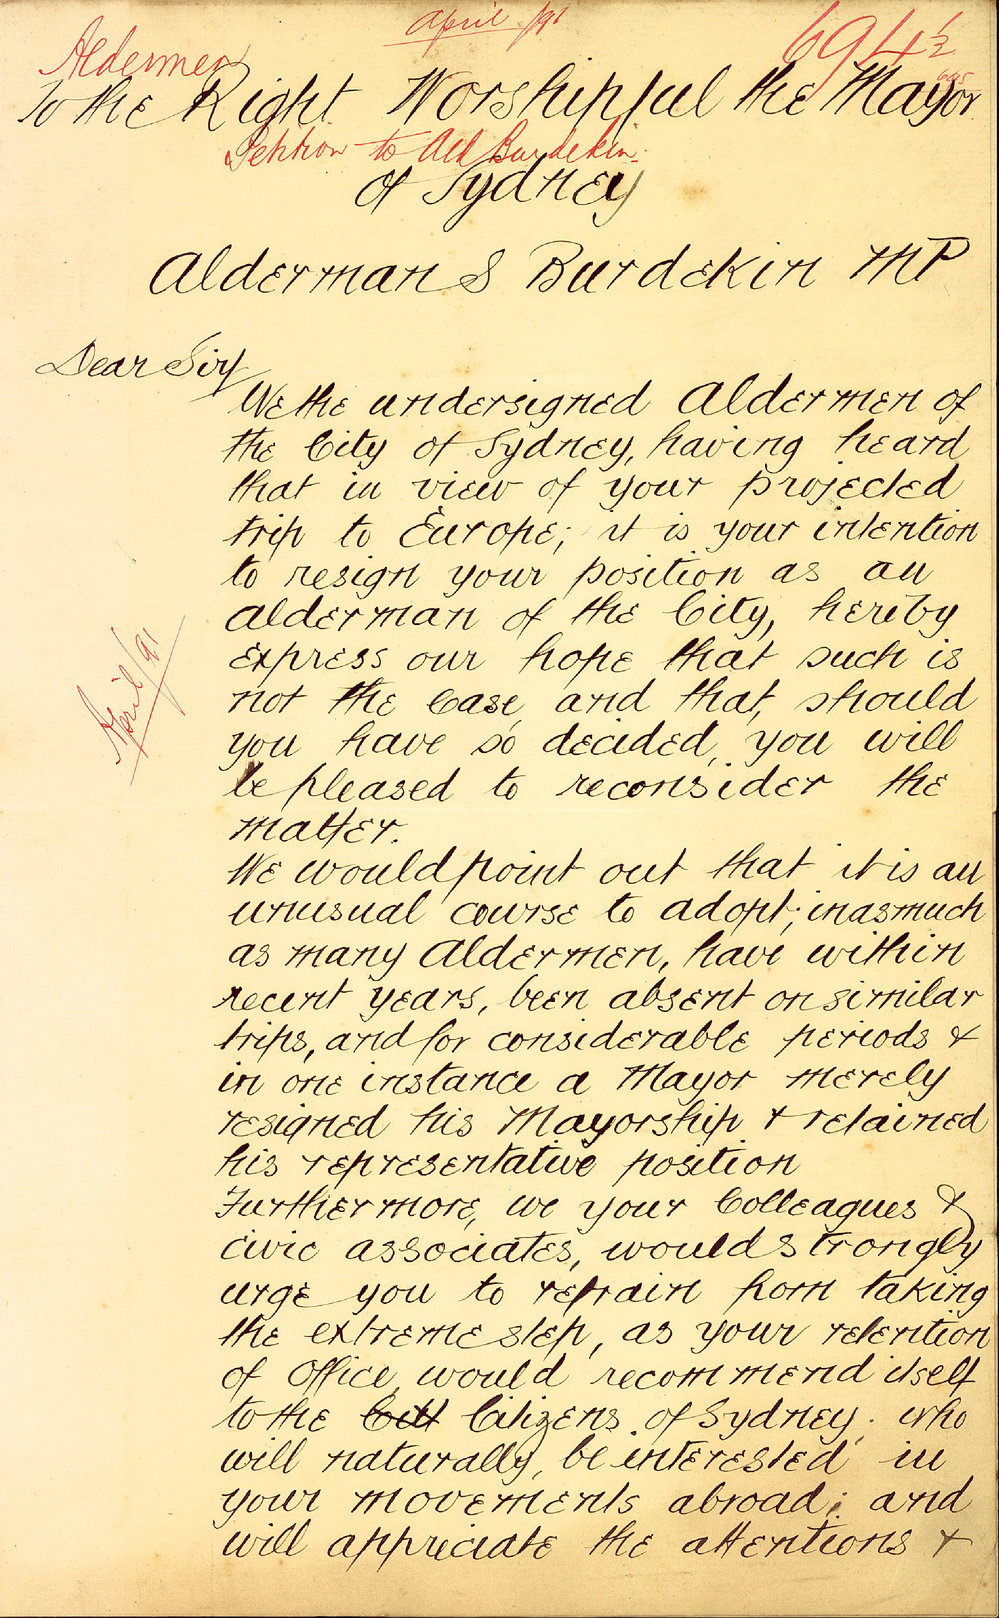 April /91
694½
695
Aldermen
To the Right Worshipful the Mayor
Petition to Ald Burdekin.
of Sydney
Alderman S Burdekin MP
Dear Sir,
We the undersigned Aldermen of
the City of Sydney, having heard
that in view of your projected
trip to Europe; it is your intention
to resign your position as an
alderman of the City, hereby
express our hope that such is
not the Case, and that, should
you have so decided, you will
be pleased to reconsider the
matter.
April/91
We would point out that it is an
unusual course to adopt; inasmuch
as many Aldermen, have within
recent years, been absent on similar
trips, and for considerable periods &
in one instance a Mayor merely
resigned his Mayorship & retained
his representative position
Furthermore, we your Colleagues &
civic associates, would strongly
urge you to refrain from taking
the extreme step, as your retention
of Office, would recommend itself
to the Citi Citizens of Sydney. who
will naturally, be interested in
your movements abroad; and
will appreciate the attentions &